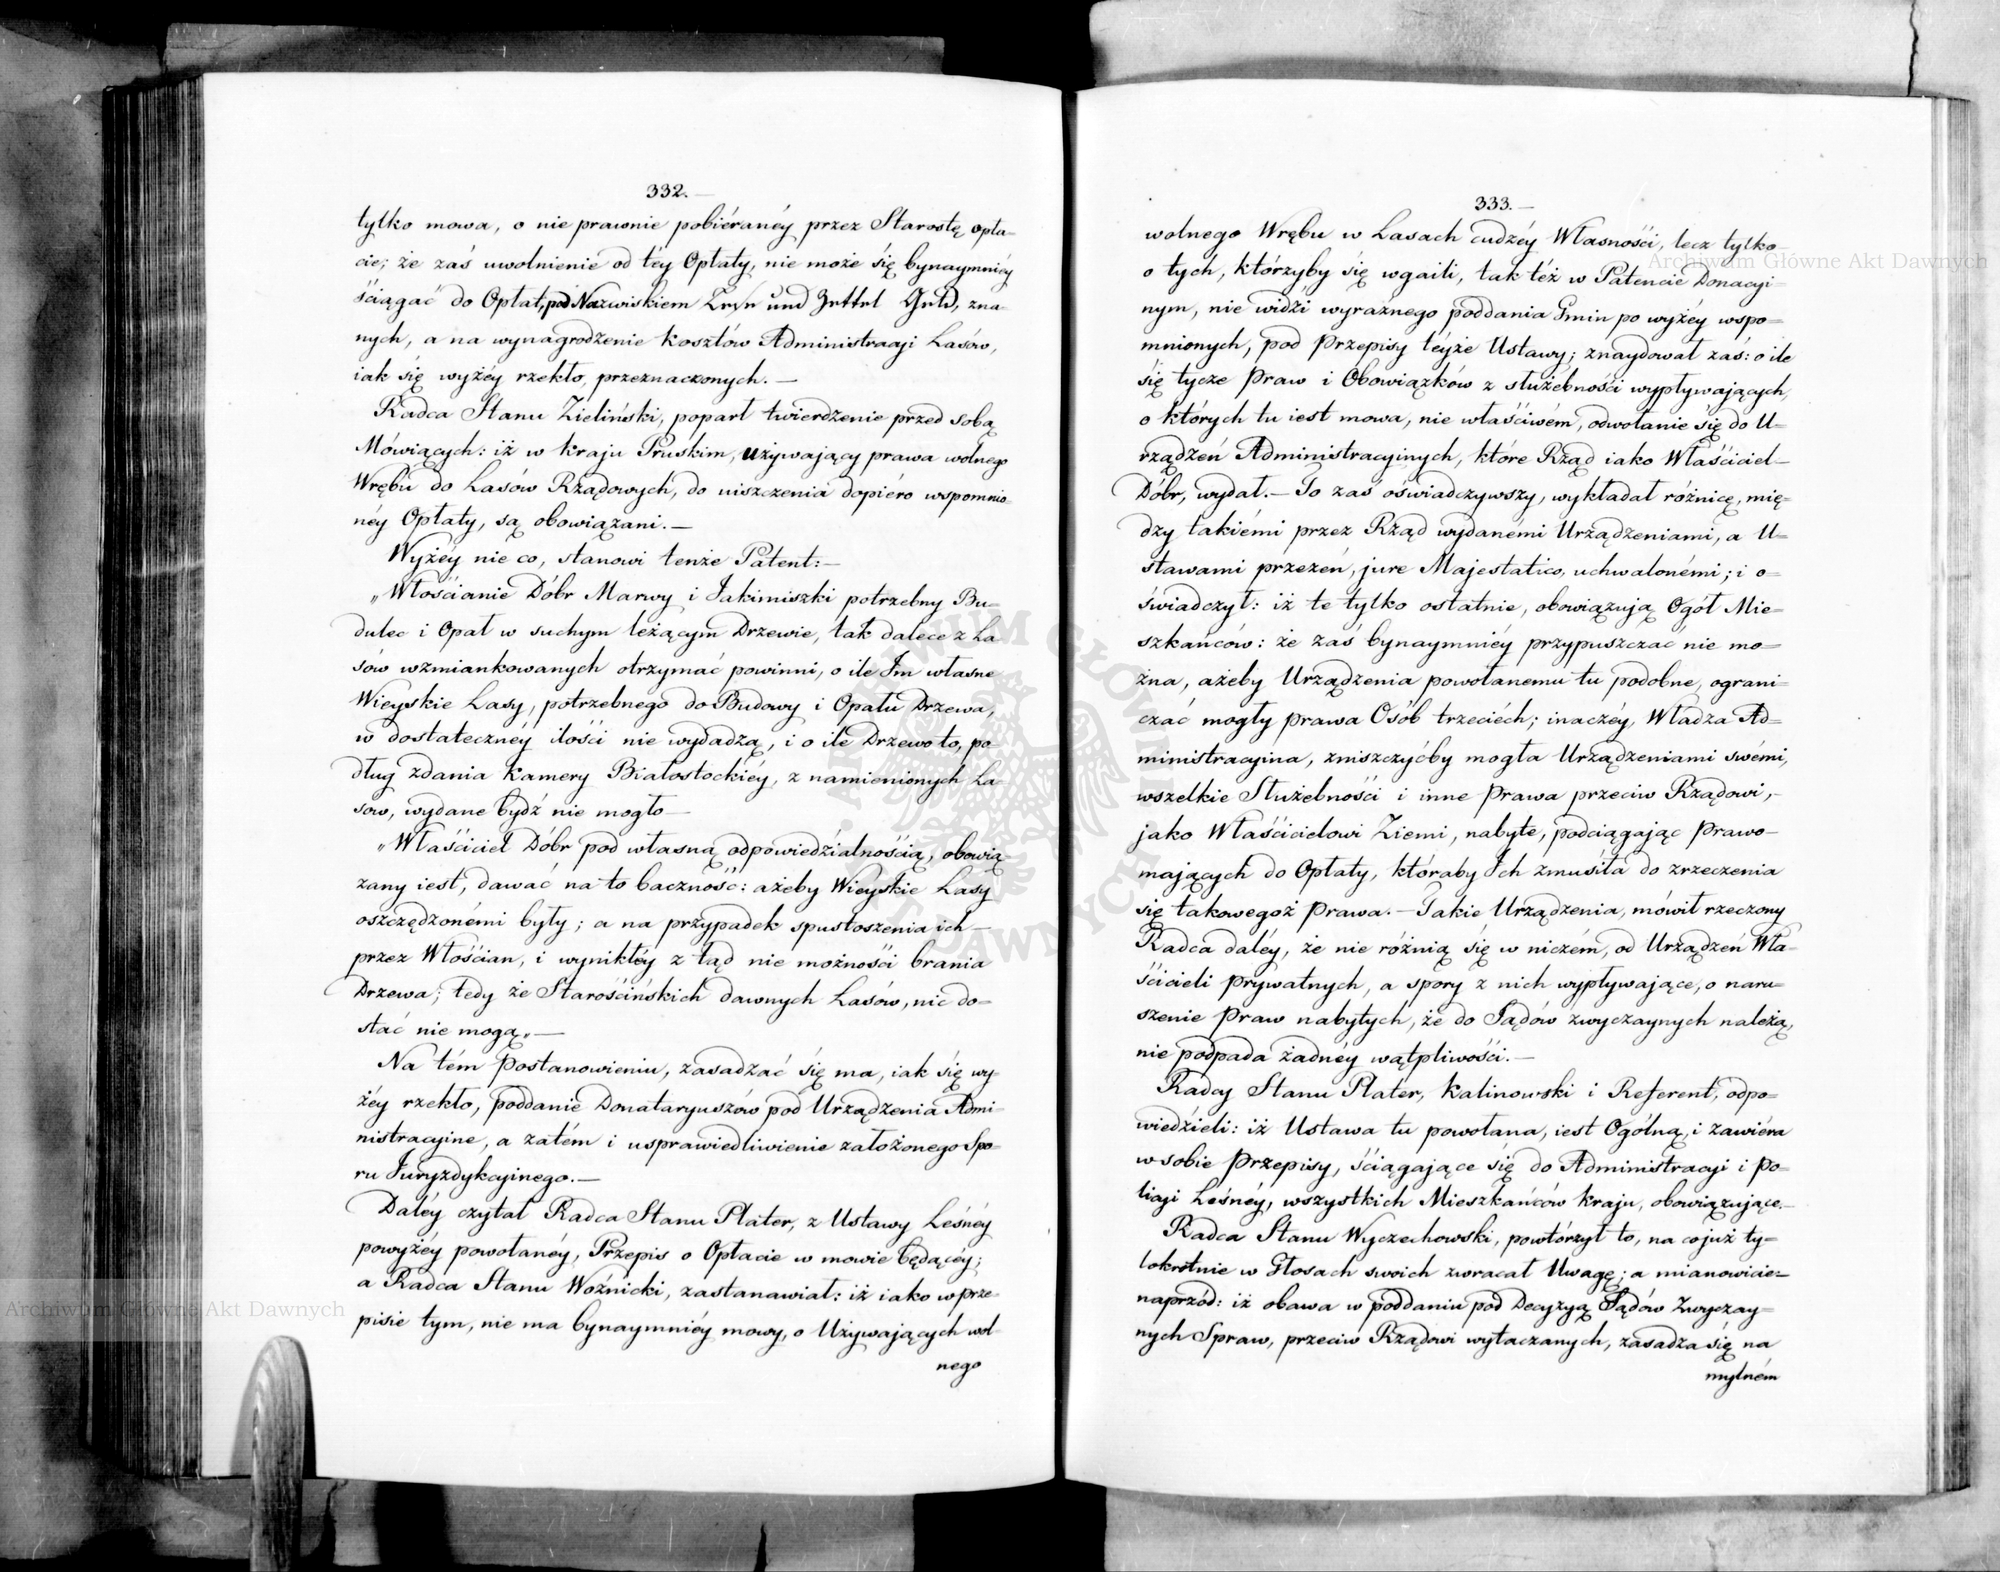 332.—
tylko mowa, o nie prawnie pobiéranéy przez Starostę opła-
cie; że zaś uwolnienie od téy Opłaty, nie może się bynaymniéy
ściągać do Opłat, pod Nazwiskiem und Zettel Geld, zna-
nych, a na wynagrodzenie kosztów Administracyi Lasów,
iak się wyżéy rzekło, przeznaczonych.—
Radca Stanu Zieliński, poparł twierdzenie przed sobą
Mówiących: iż w kraju Pruskim, używający prawa wolnego
Wrębu do Lasów Rządowych, do uiszczenia dopiéro wspomnio-
néy Opłaty, są obowiązani.—
Wyżéy nie co, stanowi tenże Patent:—
„Włościanie Dóbr Marwy i Jakimiszki potrzebny Bu-
dulec i Opał w suchym leżącym Drzewie, tak dalece z La
sów wzmiankowanych otrzymać powinni, o ile Im własne
Wieyskie Lasy, potrzebnego do Budowy i Opału Drzewa,
w dostateczney ilości nie wydadzą, i o ile Drzewo to, po-
dług zdania Kamery Białostockiéy, z namienionych La-
sow, wydane bydź nie mogło—
„Właściciel Dóbr pod własną odpowiedzialnością, obowią-
zany iest, dawać na to baczność: ażeby Wieyskie Lasy
oszczędzonémi były; a na przypadek spustoszenia ich—
przez Włościan, i wynikłéy z tąd nie możności brania
Drzewa; tedy że Starościńskich dawnych Lasów, nic do-
stać nie mogą„—
Na tém Postanowieniu, zasadzać się ma, iak się wy-
żéy rzekło, poddanie Donataryuszów pod Urządzenia Admi-
nistracyine, a zatém i usprawiedliwienie założonego Spo-
ru Juryzdykcyinego.—
Daléy czytał Radca Stanu Plater, z Ustawy Leśnéy
powyżéy powołanéy, Przepis o Opłacie w mowie będącéy;
a Radca Stanu Woźnicki, zastanawiał: iż iako w prze-
pisie tym, nie ma bynaymniéy mowy, o Używających wol-
nego
333.—
wolnego Wrębu w Lasach cudzéy Własności, lecz tylko—
o tych, którzyby się wgaili, tak też w Patencie Donacyi-
nym, nie widzi wyraźnego poddania Gmin po wyżéy wspo-
mnionych, pod Przepisy téyże Ustawy; znaydował zaś: o ile
się tycze Praw i Obowiązków z służebności wypływających,
o których tu iest mowa, nie właściwém, odwołanie się do U-
rządzeń Administracyinych, które Rząd iako Właściciel—
Dóbr, wydał.— To zaś oświadczywszy, wykładał różnicę, mię-
dzy takiémi przez Rząd wydanémi Urządzeniami, a U-
stawami przezeń, jure Majestatico, uchwalonémi; i o-
świadczył: iż te tylko ostatnie, obowiązują Ogół Mie-
szkańców: że zaś bynaymniéy przypuszczac nie mo-
żna, ażeby Urządzenia powołanemu tu podobne, ograni-
czać mogły prawa Osób trzeciéch; inaczéy, Władza Ad-
ministracyina, zniszczyćby mogła Urządzeniami swémi,
wszelkie Służebności i inne Prawa przeciw Rządowi,—
jako Właścicielowi Ziemi, nabyte, podciągając Prawo-
mających do Opłaty, któraby Ich zmusiła do zrzeczenia
się takowegoż Prawa.— Takie Urządzenia, mówił rzeczony
Radca daléy, że nie różnią się w niczém, od Urządzeń Wła-
ścicieli prywatnych, a spory z nich wypływające, o naru-
szenie Praw nabytych, że do Sądów zwyczaynych należą,
nie podpada żadnéy wątpliwości.—
Radcy Stanu Plater, Kalinowski i Referent, odpo-
wiedzieli: iż Ustawa tu powołana, iest Ogólną, i zawiéra
w sobie Przepisy, ściągające się do Administracyi i Po-
licyi Leśnéy, wszystkich Mieszkańców kraju, obowiązujące.—
Radca Stanu Wyczechowski, powtórzył to, na co już ty-
lokrotnie w Głosach swoich zwracał Uwagę; a mianowicie:—
naprzód: iż obawa w poddaniu pod Decyzyą Sądów Zwyczay-
nych Spraw, przeciw Rządowi wytaczanych, zasadza się na
mylném
Archiwum Główne Akt Dawnych
Archiwum Główne Akt Dawnych
ARCHIWUM GŁÓWNE AKT DAWNYCH